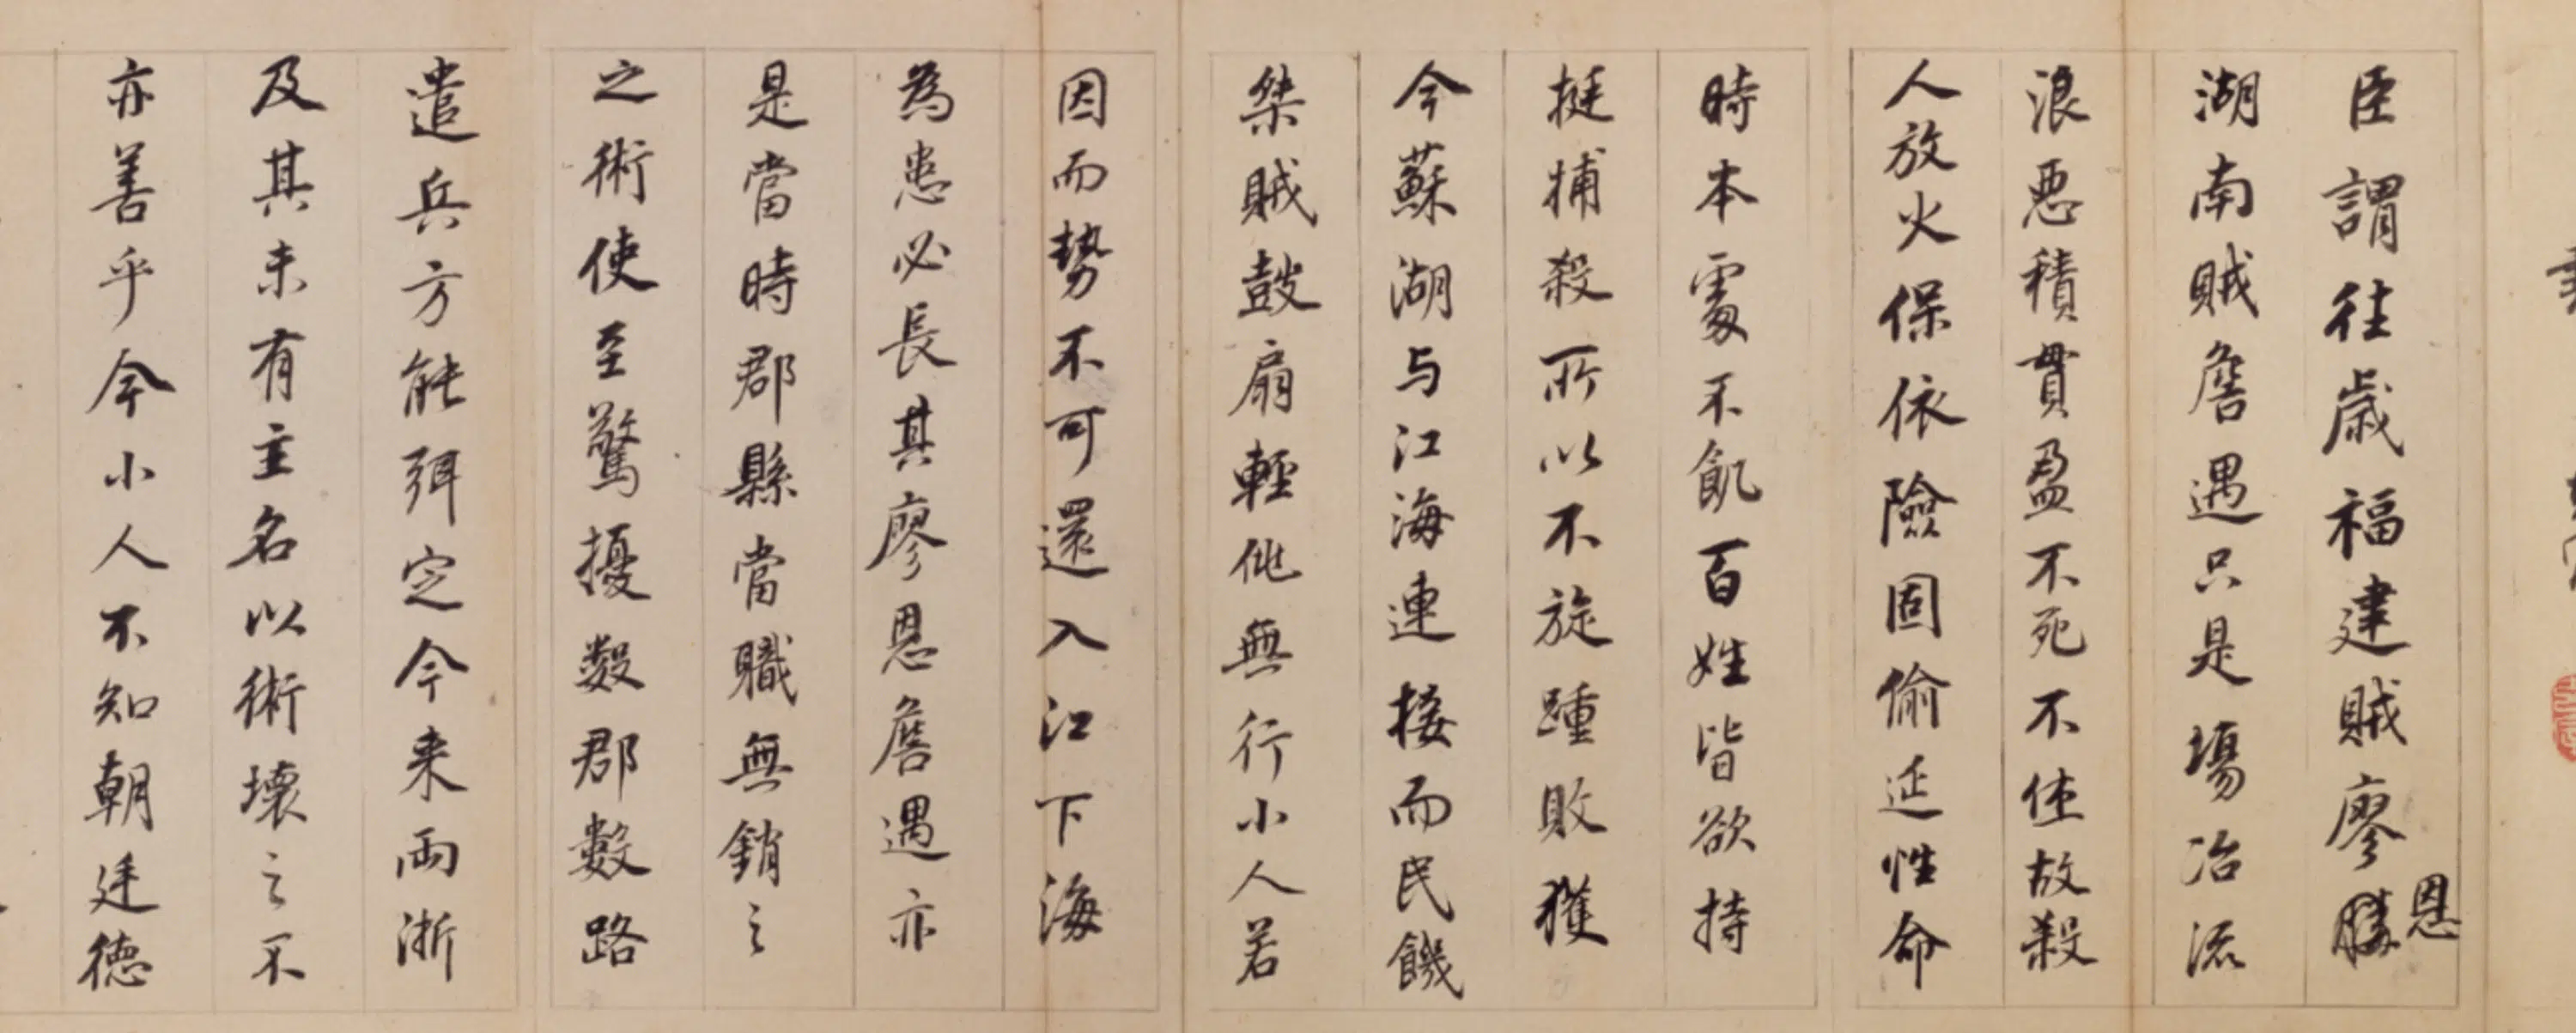 臣謂往歲福建賊廖恩
湖南賊詹遇只是場冶流
浪惡積貫盈不死不住故殺
人放火保依險固偷延性命
時本處不飢百姓皆欲持
挺捕殺所以不旋踵敗獲
今蘇湖与江海連接而民饑
桀賊鼓扇輕佻無行小人若
因而勢不可還入江下海
為患必長其廖恩詹遇亦
是當時郡縣當職無銷之
之術使至驚擾数郡數路
遣兵方能弭定今来兩浙
及其未有主名以術壞之不
亦善乎今小人不知朝廷德